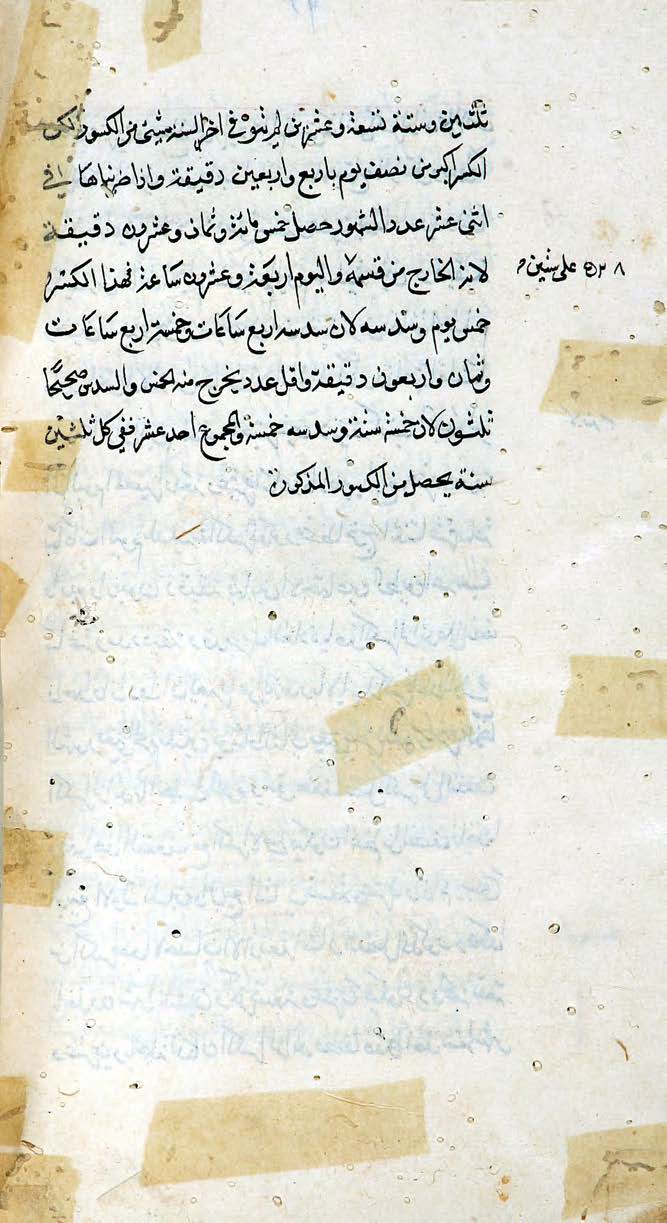 ثلثين وستة تسعة وعشرين لم يبق في اخر السنة شيئ من الكسور لكن
الكسر اكبر من نصف يوم باربع واربعين دقيقة واذا ضربناها في
اثني عشر عدد الشهور حصل خمس مائة وثمان وعشرون دقيقة
لانه الخارج من قسمة واليوم اربعة وعشرون ساعة فهذا الكسر
٥٢٨ على ستين
خمس يوم وسدسه لان سدسه اربع ساعات وخمسه اربع ساعات
وثمان واربعون دقيقة واقل عدد يخرج منه الخمس والسدس صحيحا
ثلثون لان خمسه ستة وسدسه خمسة والمجموع احد عشر ففي كل ثلثين
سنة يحصل من الكسور المذكورة